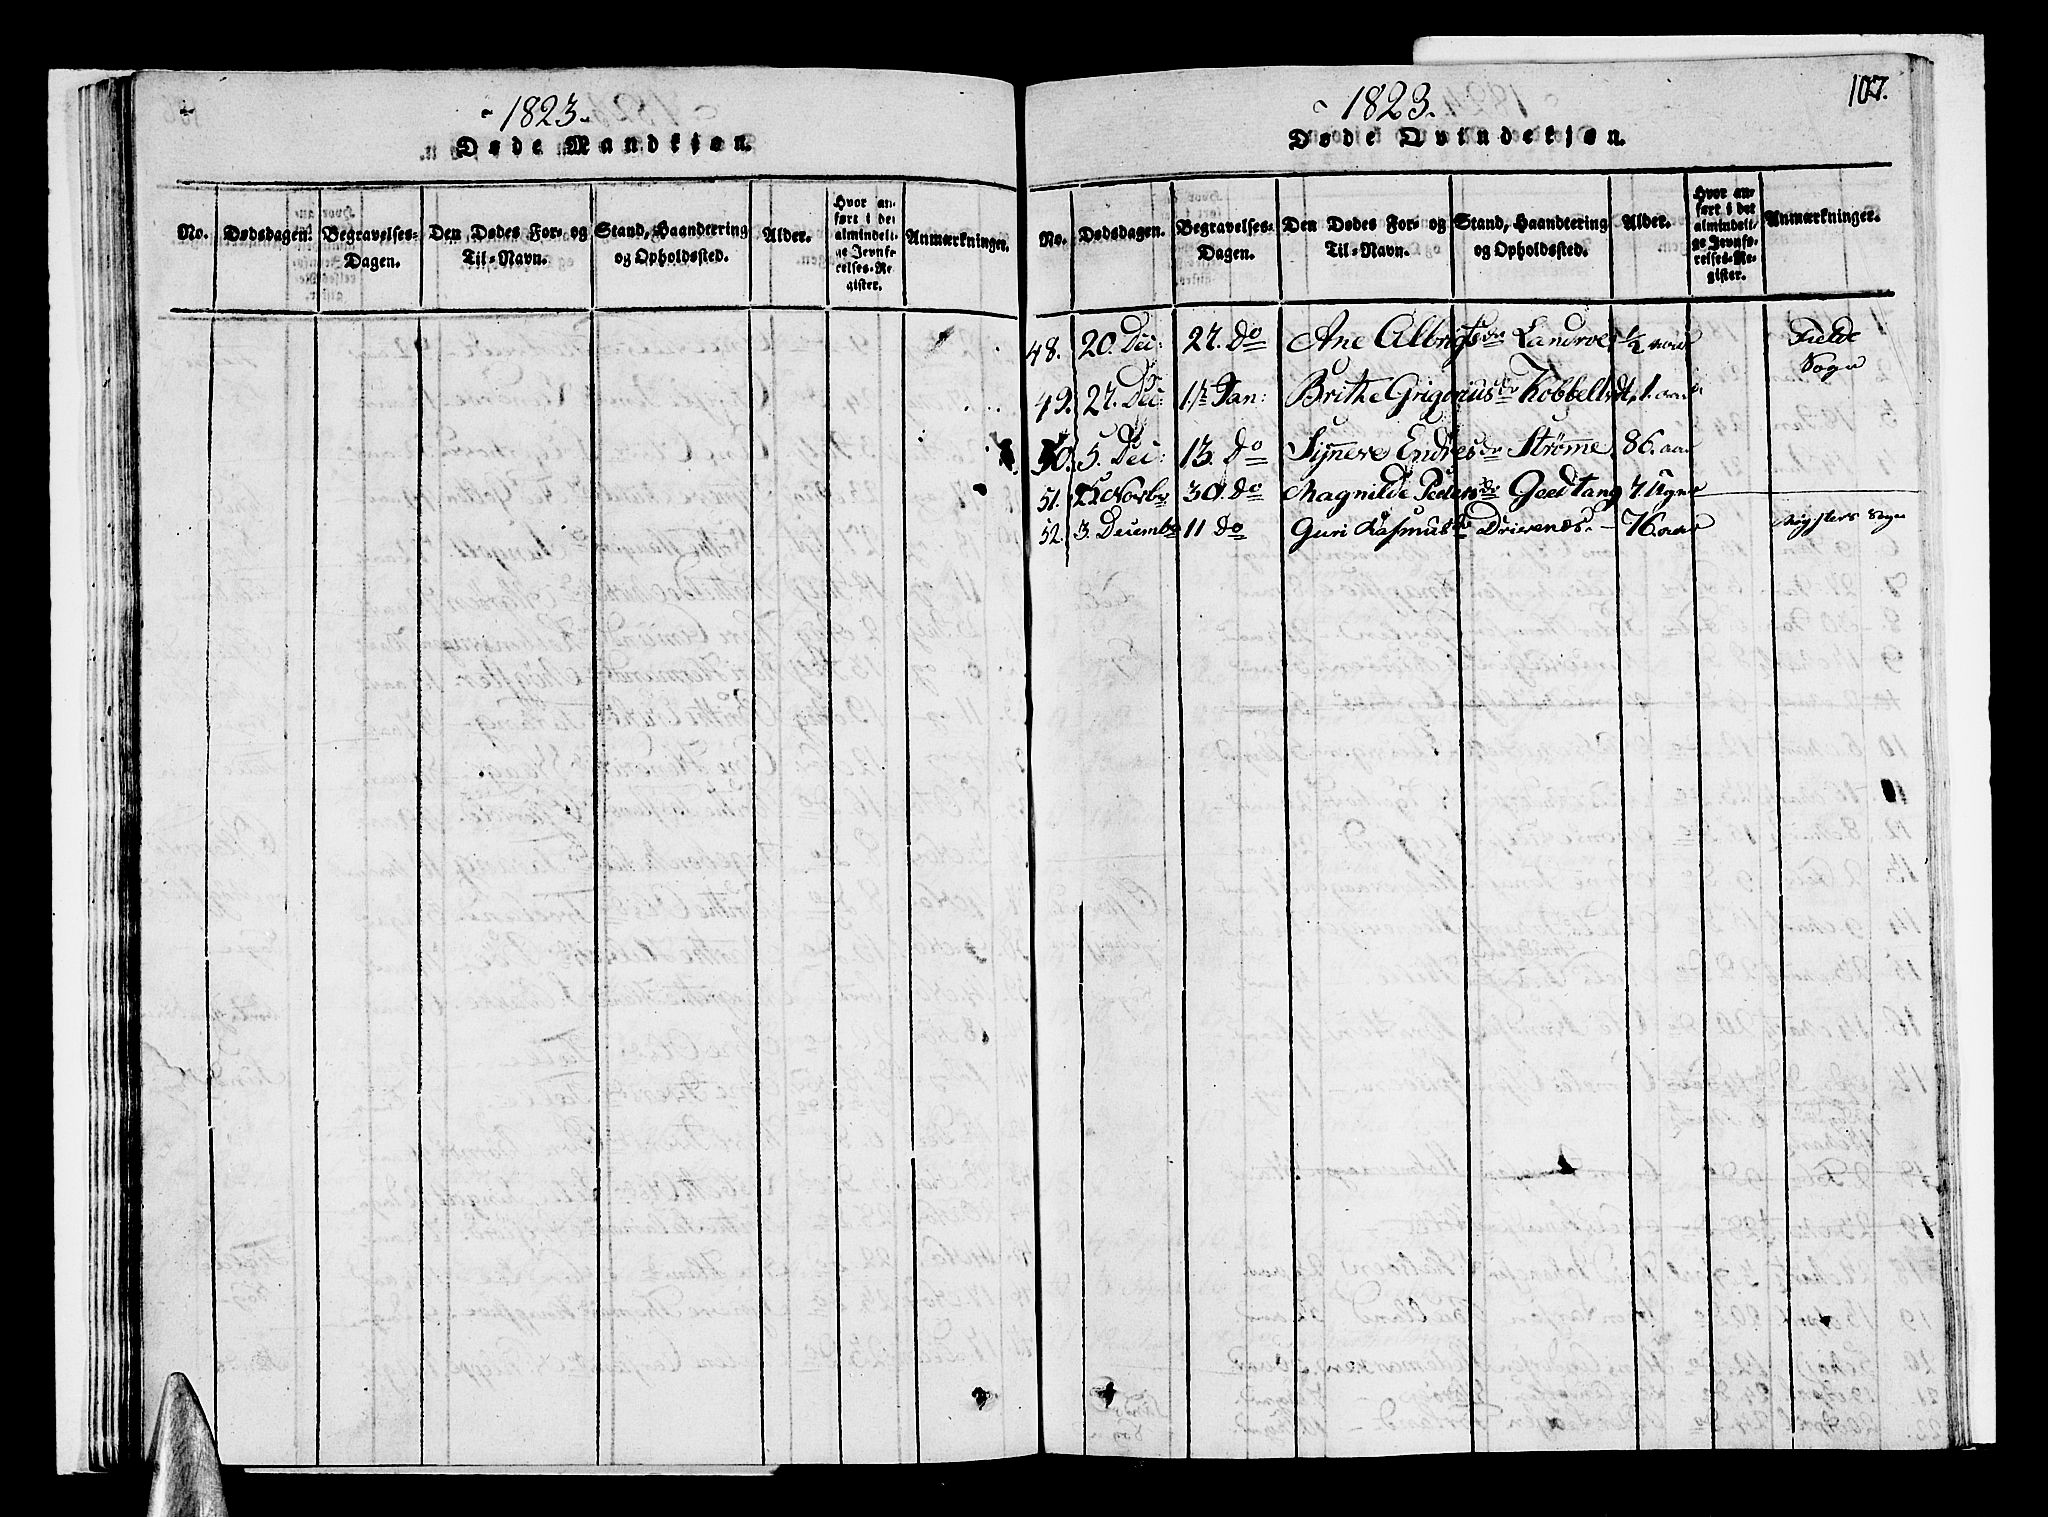 - 1823.
Døde Mandkiøn.
No. Dødsdagen. Begravelses-Dagen. Den Dødes For- og Til-Navn. Stand, Haandtering og Opholdssted. Alder. Hvor anført i det almindelige Jevnførelses-Register. Anmærkninger.
107.
- 1823.
Døde Qvindekjøn.
No. Dødsdagen. Begravelses-Dagen. Den Dødes For- og Til-Navn. Stand, Haandtering og Opholdssted. Alder. Hvor anført i det almindelige Jevnførelses-Register. Anmærkninger.
48. 20. Dec: 27. Do Ane Albrigtsdr Landroe 1/2 aar Fielde Sogn
49. 27. Dec: Jan: Brithe Grigoriusdr Kobbeltvdt, 1. aar
50. 5. Dec: 13. Do Synneve Endresdr Strømme 86. aar
51. Novbr 30. Do Magnilde Pedersdr Goedtang 7 Ugr
52. 3. Decembr 11 Do Guri Rasmusdr Drivenæs - 76. aar Møgsters Sogn